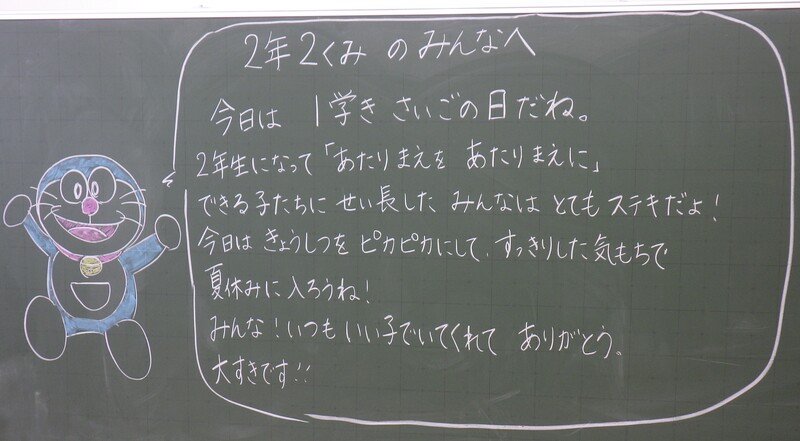 2年2くみ のみんなへ
今日は 1学き さいごの日だね。
2年生になって「あたりまえを あたりまえに」
できる子たちに せい長した みんなは とてもステキだよ!
今日は きょうしつを ピカピカにして、すっきりした気もちで
夏休みに入ろうね!
みんな!いつも いい子でいてくれて ありがとう。
大すきです!!